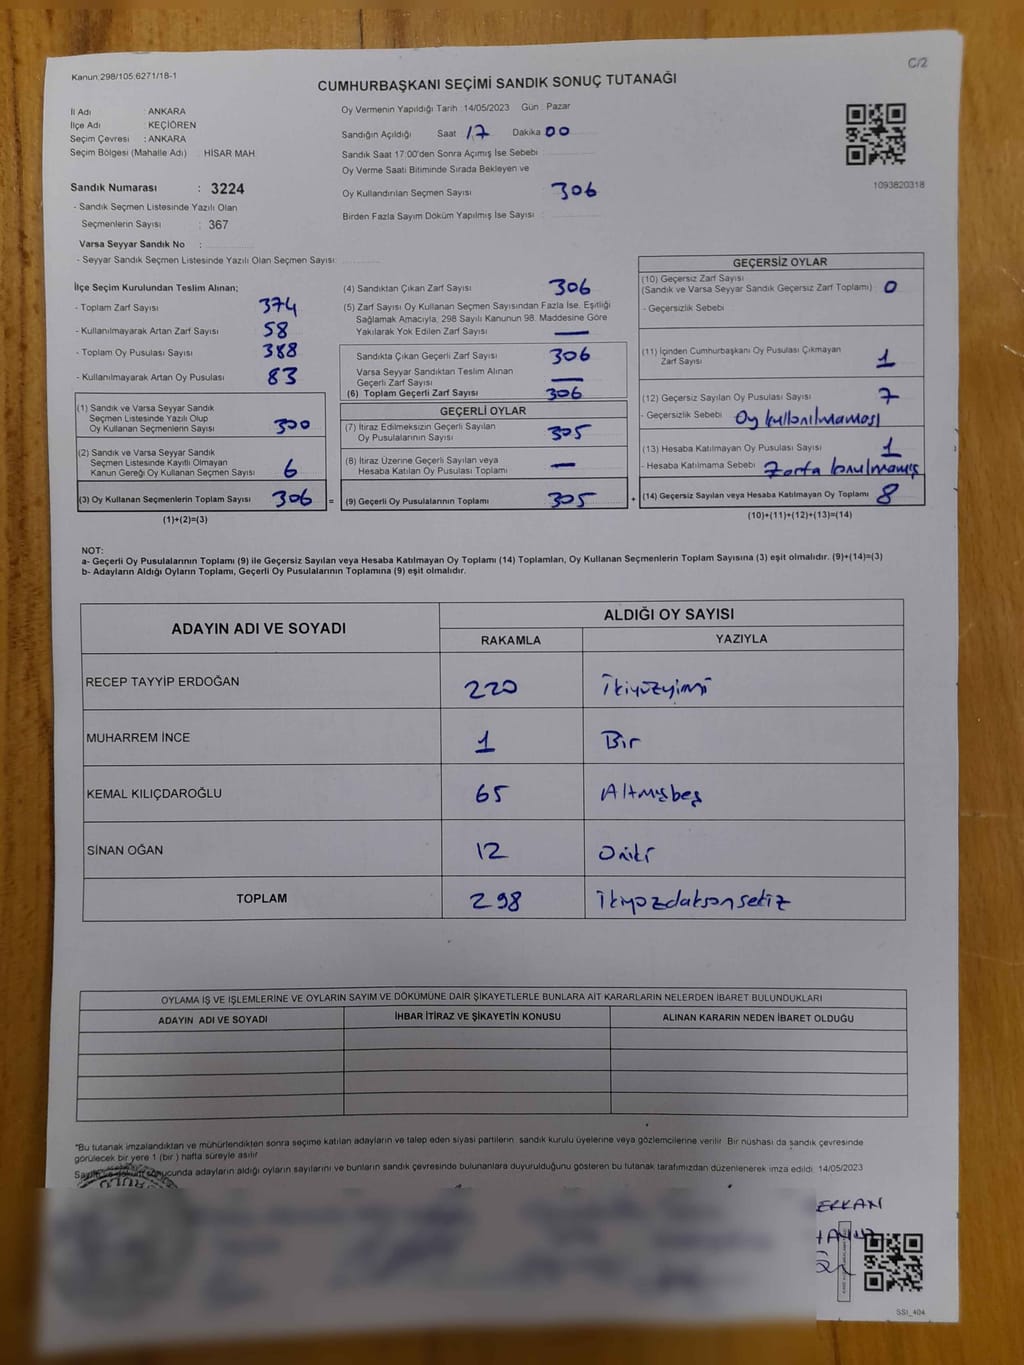 C/2
Kanun:298/105.6271/18-1
CUMHURBAŞKANI SEÇİMİ SANDIK SONUÇ TUTANAĞI
İl Adı : ANKARA
İlçe Adı : KEÇİÖREN
Seçim Çevresi : ANKARA
Seçim Bölgesi (Mahalle Adı) : HİSAR MAH
Oy Vermenin Yapıldığı Tarih :14/05/2023 Gün : Pazar
Sandığın Açıldığı Saat 17 Dakika 00
Sandık Saat 17:00'den Sonra Açımış İse Sebebi
Oy Verme Saati Bitiminde Sırada Bekleyen ve
Oy Kullandırılan Seçmen Sayısı 306
Birden Fazla Sayım Döküm Yapılmış İse Sayısı :
1093820318
Sandık Numarası : 3224
- Sandık Seçmen Listesinde Yazılı Olan
Seçmenlerin Sayısı : 367
Varsa Seyyar Sandık No :
- Seyyar Sandık Seçmen Listesinde Yazılı Olan Seçmen Sayısı:
İlçe Seçim Kurulundan Teslim Alınan;
- Toplam Zarf Sayısı 374
- Kullanılmayarak Artan Zarf Sayısı 58
- Toplam Oy Pusulası Sayısı 388
- Kullanılmayarak Artan Oy Pusulası 83
(1) Sandık ve Varsa Seyyar Sandık
Seçmen Listesinde Yazılı Olup
Oy Kullanan Seçmenlerin Sayısı 300
(2) Sandık ve Varsa Seyyar Sandık
Seçmen Listesinde Kayıtlı Olmayan
Kanun Gereği Oy Kullanan Seçmen Sayısı 6
(3) Oy Kullanan Seçmenlerin Toplam Sayısı 306 =
(1)+(2)=(3)
(4) Sandıktan Çıkan Zarf Sayısı 306
(5) Zarf Sayısı Oy Kullanan Seçmen Sayısından Fazla İse, Eşitliği
Sağlamak Amacıyla, 298 Sayılı Kanunun 98. Maddesine Göre
Yakılarak Yok Edilen Zarf Sayısı —
Sandıkta Çıkan Geçerli Zarf Sayısı 306
Varsa Seyyar Sandıktan Teslim Alınan
Geçerli Zarf Sayısı —
(6) Toplam Geçerli Zarf Sayısı 306
GEÇERLİ OYLAR
(7) İtiraz Edilmeksizin Geçerli Sayılan
Oy Pusulalarının Sayısı 305
(8) İtiraz Üzerine Geçerli Sayılan veya
Hesaba Katılan Oy Pusulası Toplamı —
(9) Geçerli Oy Pusulalarının Toplamı 305 +
GEÇERSİZ OYLAR
(10) Geçersiz Zarf Sayısı
(Sandık ve Varsa Seyyar Sandık Geçersiz Zarf Toplamı) 0
- Geçersizlik Sebebi
(11) İçinden Cumhurbaşkanı Oy Pusulası Çıkmayan
Zarf Sayısı 1
(12) Geçersiz Sayılan Oy Pusulası Sayısı 7
- Geçersizlik Sebebi Oy kullanılmaması
(13) Hesaba Katılmayan Oy Pusulası Sayısı 1
- Hesaba Katılmama Sebebi Zarfa konulmamış
(14) Geçersiz Sayılan veya Hesaba Katılmayan Oy Toplamı 8
(10)+(11)+(12)+(13)=(14)
NOT:
a- Geçerli Oy Pusulalarının Toplamı (9) ile Geçersiz Sayılan veya Hesaba Katılmayan Oy Toplamı (14) Toplamları, Oy Kullanan Seçmenlerin Toplam Sayısına (3) eşit olmalıdır. (9)+(14)=(3)
b- Adayların Aldığı Oyların Toplamı, Geçerli Oy Pusulalarının Toplamına (9) eşit olmalıdır.
ADAYIN ADI VE SOYADI ALDIĞI OY SAYISI
RAKAMLA YAZIYLA
RECEP TAYYİP ERDOĞAN 220 ikiyüzyirmi
MUHARREM İNCE 1 Bir
KEMAL KILIÇDAROĞLU 65 Altmışbeş
SİNAN OĞAN 12 Oniki
TOPLAM 298
OYLAMA İŞ VE İŞLEMLERİNE VE OYLARIN SAYIM VE DÖKÜMÜNE DAİR ŞİKAYETLERLE BUNLARA AİT KARARLARIN NELERDEN İBARET BULUNDUKLARI
ADAYIN ADI VE SOYADI İHBAR İTİRAZ VE ŞİKAYETİN KONUSU ALINAN KARARIN NEDEN İBARET OLDUĞU
*Bu tutanak imzalandıktan ve mühürlendikten sonra seçime katılan adayların ve talep eden siyasi partilerin sandık kurulu üyelerine veya gözlemcilerine verilir. Bir nüshası da sandık çevresinde
görülecek bir yere 1 (bir ) hafta süreyle asılır
sonucunda adayların aldığı oyların sayılarını ve bunların sandık çevresinde bulunanlara duyurulduğunu gösteren bu tutanak tarafımızdan düzenlenerek imza edildi. 14/05/2023
ERKAN
SSI_404